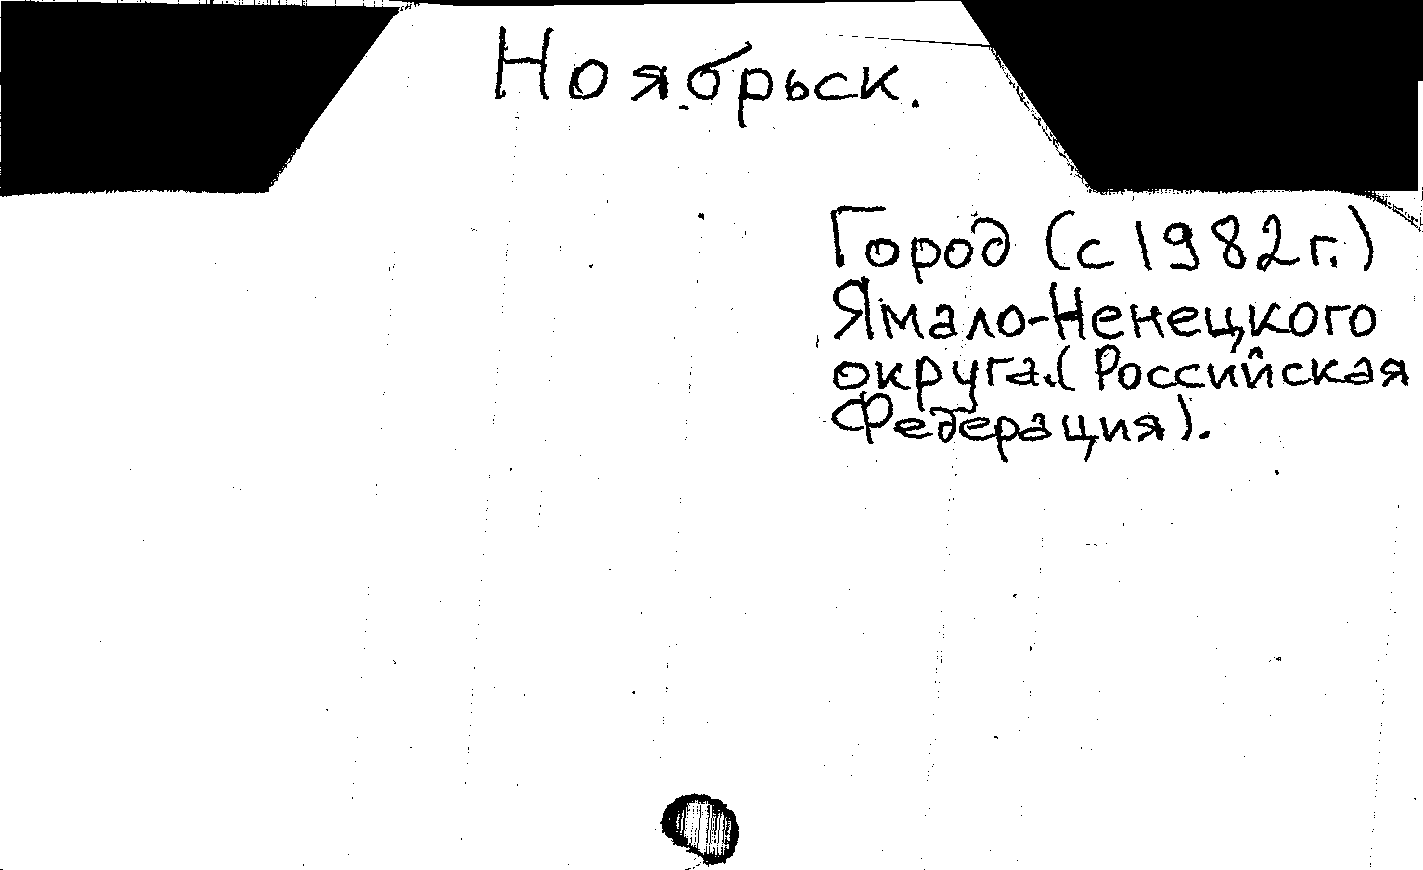 Ноябрьск.
Город (с 1982г.)
Ямало-Ненецкого
округа.(Российская
Федерация).